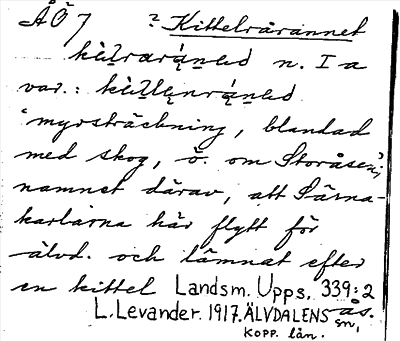 ÅÖ 7 ? Kittelrårannet
n. I a
var.:
"myrsträckning, blandad
med skog, ö. om Storåsen";
namnet därav, att Särna-
karlarna här flytt för
älvd. och lämnat efter
en kittel Landsm. Upps. 339:2
L. Levander. 1917. ÄLVDALENS
sn,
KOPP. län.